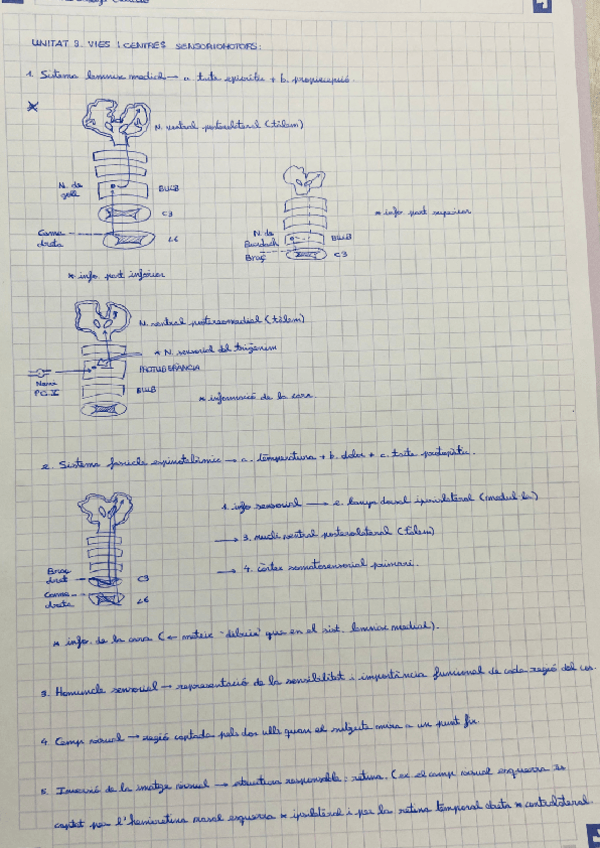 UNITAT 3. VIES I CENTRES SENSORIOMOTORS:
1. Sistema lemnisc medial → a. tacte epicrític + b. propiocepció.
N. ventral posterolateral (tàlem)
N. de
BULB
C3
Cama
dreta
L6
* info. part inferior
* info part superior
N. de
Burdach
BULB
Braç
C3
N. ventral posteromedial (tàlem)
* N. sensorial del trigèmin
PROTUBERÀNCIA
Nervi
BULB
* informació de la cara
2. Sistema fascicle espinotalàmic → a. temperatura + b. dolor + c. tacte protopàtic.
1. info sensorial → 2. banya dorsal ipsilateral (medul·la)
→ 3. nucli ventral posterolateral (tàlem)
→ 4. còrtex somatosensorial primari.
Braç
dret
C3
Cama
dreta
L6
* info. de la cara (← mateix "dibuix" que en el sist. lemnisc medial).
3. Homuncle sensorial → representació de la sensibilitat i importància funcional de cada regió del cos.
4. Camp visual → regió captada pels dos ulls quan el subjecte mira a un punt fix.
5. Inversió de la imatge visual → estructura responsable: retina. (ex el camp visual esquerra és
captat per l'hemiretina nasal esquerra * ipsilateral i per la retina temporal dreta * contralateral.